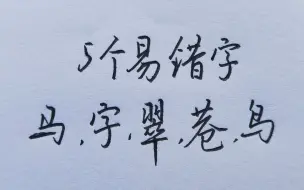 5个易错字
马,字,翠,苍,鸟